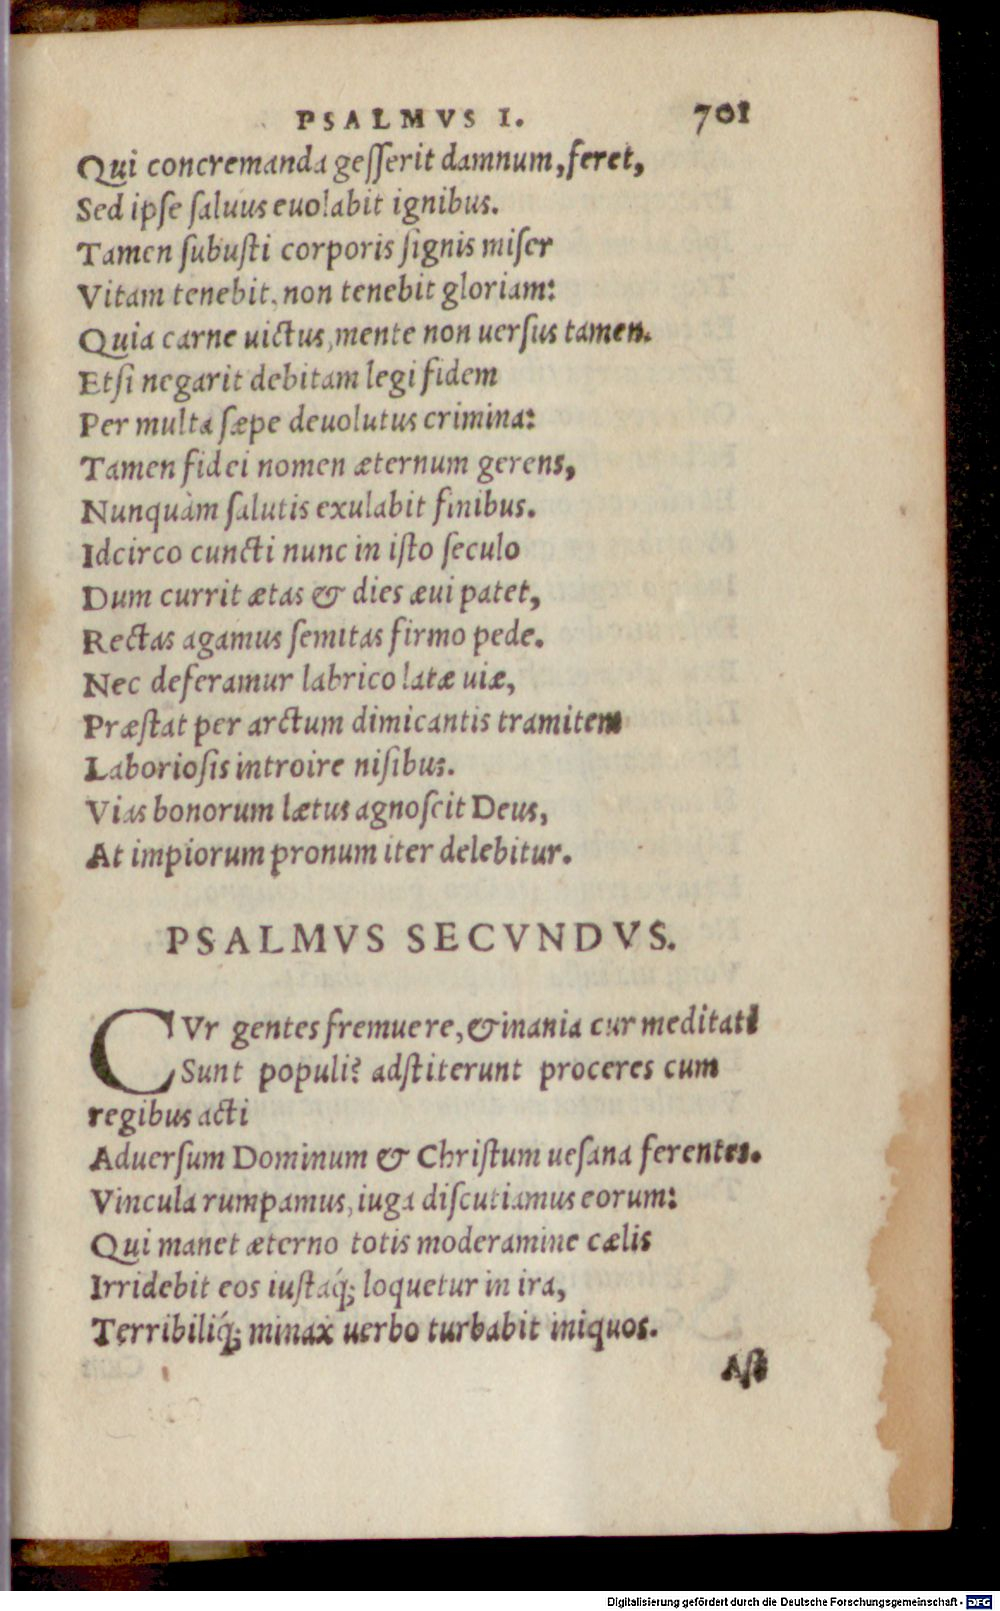 PSALMVS I. 701
Qui concremanda geſſerit damnum, feret,
Sed ipſe ſaluus euolabit ignibus.
Tamen ſubuſti corporis ſignis miſer
Vitam tenebit, non tenebit gloriam:
Quia carne uictus, mente non uerſus tamen.
Etſi negarit debitam legi fidem
Per multa ſæpe deuolutus crimina:
Tamen fidei nomen æternum gerens,
Nunquàm ſalutis exulabit finibus.
Idcirco cuncti nunc in iſto ſeculo
Dum currit ætas & dies æui patet,
Rectas agamus ſemitas firmo pede.
Nec deferamur labrico latæ uiæ,
Præſtat per arctum dimicantis tramitem
Laborioſis introire niſibus.
Vias bonorum lætus agnoſcit Deus,
At impiorum pronum iter delebitur.
PSALMVS SECVNDVS.
CVr gentes fremuere, & inania cur meditati
Sunt populi? adſtiterunt proceres cum
regibus acti
Aduerſum Dominum & Chriſtum ueſana ferentes.
Vincula rumpamus, iuga diſcutiamus eorum:
Qui manet æterno totis moderamine cælis
Irridebit eos iuſtaq́; loquetur in ira,
Terribiliq́; minax uerbo turbabit iniquos.
Aſt
Digitalisierung gefördert durch die Deutsche Forschungsgemeinschaft - DFG